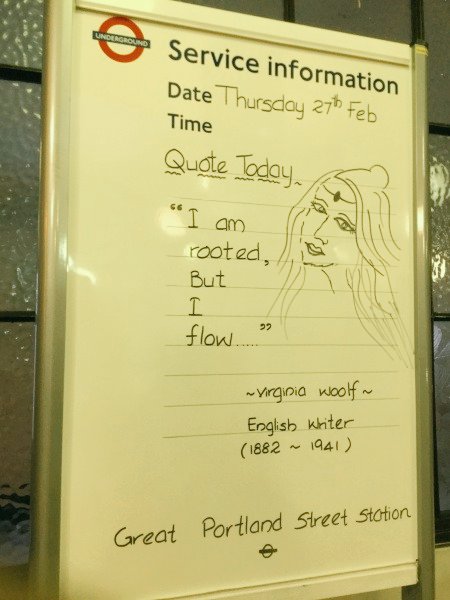 UNDERGROUND
Service information
Date Thursday 27th Feb
Time
Quote Today
“I am
rooted,
But
I
flow.....”
~Virginia Woolf~
English Writer
(1882 ~ 1941)
Great Portland Street Station